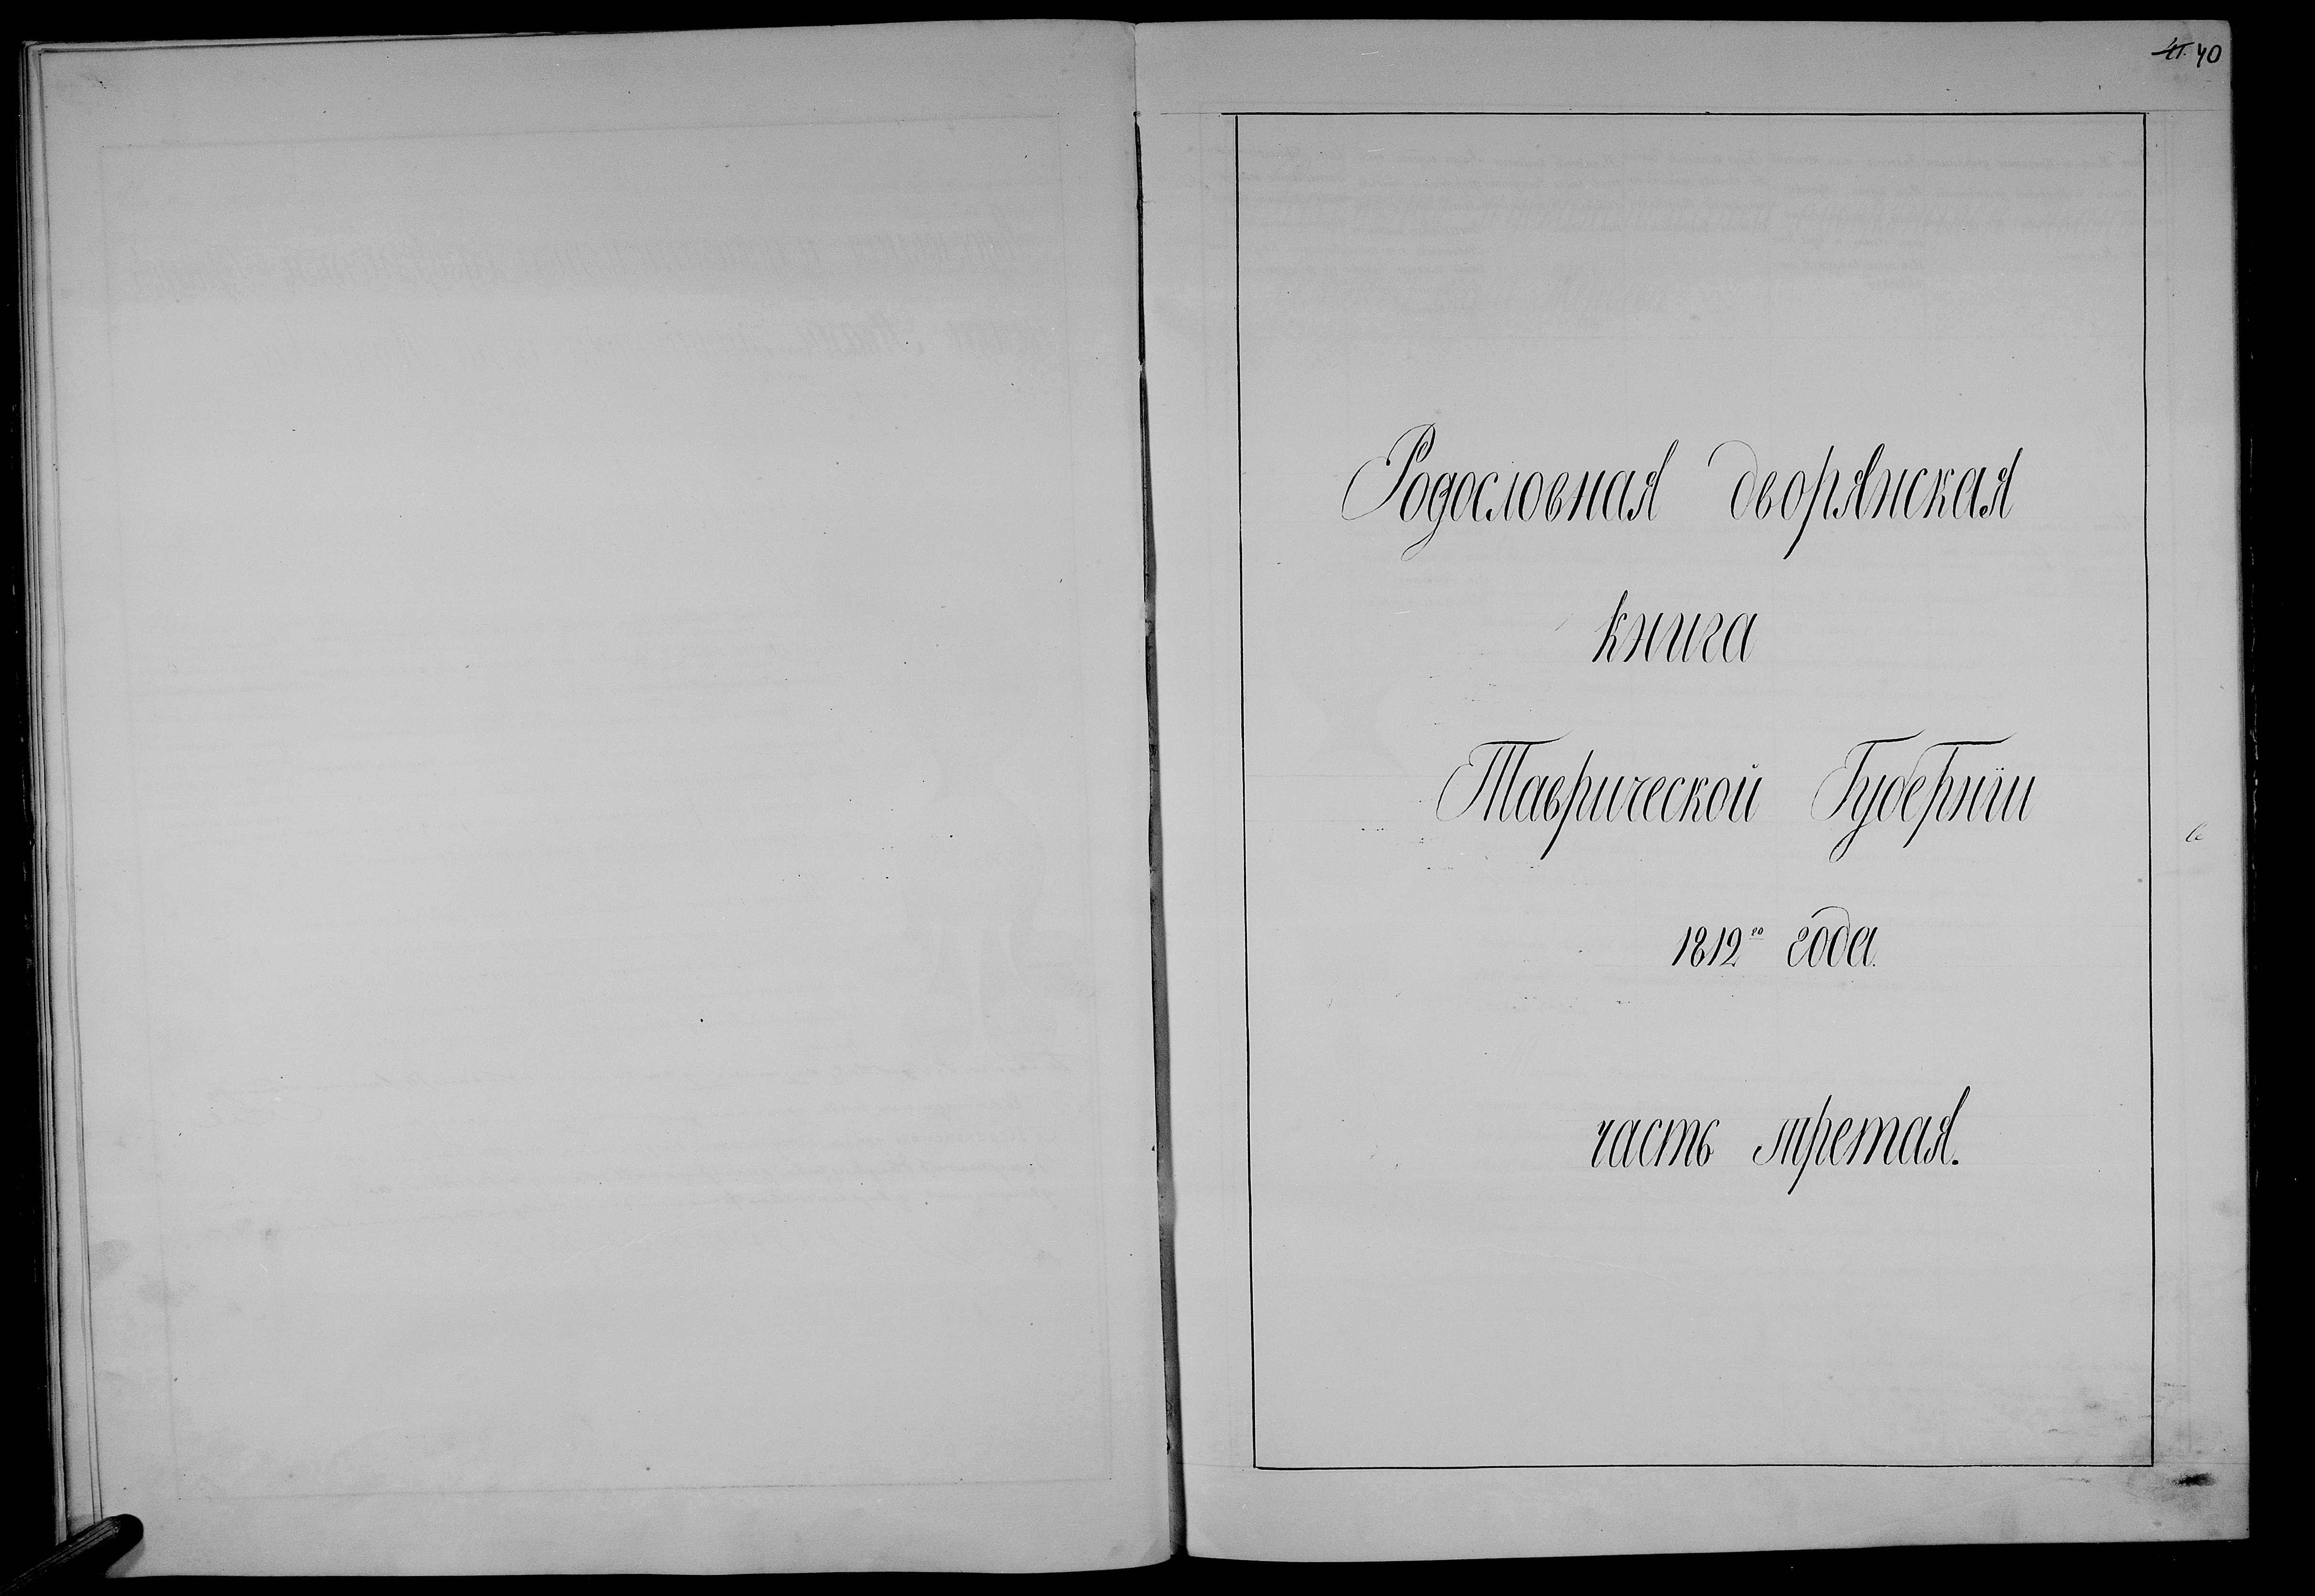 40
Родословная дворянская
книга
Таврической Губерніи
1812го года.
часть третая.